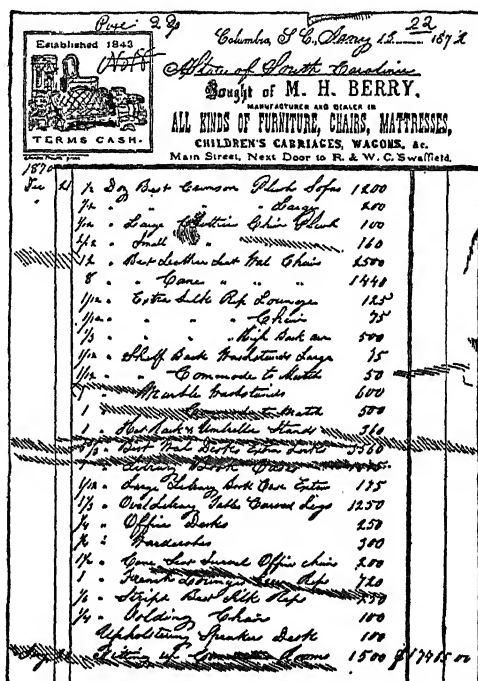 Established 1843
TERMS CASH.
22
Columbia, S. C., Jany 13 1872
State of South Carolina
Bought of M. H. BERRY,
MANUFACTURER AND DEALER IN
ALL KINDS OF FURNITURE, CHAIRS, MATTRESSES,
CHILDREN'S CARRIAGES, WAGONS, &c.
Main Street, Next Door to R. & W. C. Swaffield.
1870
21 1/2 Doz Best Crimson Plush Sofas 1200
1/12 " " " " Large 200
1/12 " Large Chair Plush 100
2/12 " Small " 160
12 " Best Leather Seat Wal Chair 2500
8 " Cane " " " 1440
1/12 " Extra Silk Rep Lounge 125
1/12 " " " " Chair 75
1/3 " " " " High Back 500
1/12 " Shelf Back Washstands Large 75
1/12 " Commode to Match 50
1 " Marble Washstands 600
1 " to Match 500
1 " Hat Rack & Umbrella Stands 360
" Best Desks Extra 3360
" Library Book
1/12 " Large Library Book Case Extra 175
1/3 " Oval Library Table Carved Legs 1250
1/4 " Office Desks 250
" Wardrobes 300
1/2 " Cane Seat Office chairs 200
1 " French Lounges Rep 720
1/6 " Best Silk Rep 250
1/4 " Folding Chair 100
Upholstering Speaker Desk 100
Fitting up Committee Rooms 1500